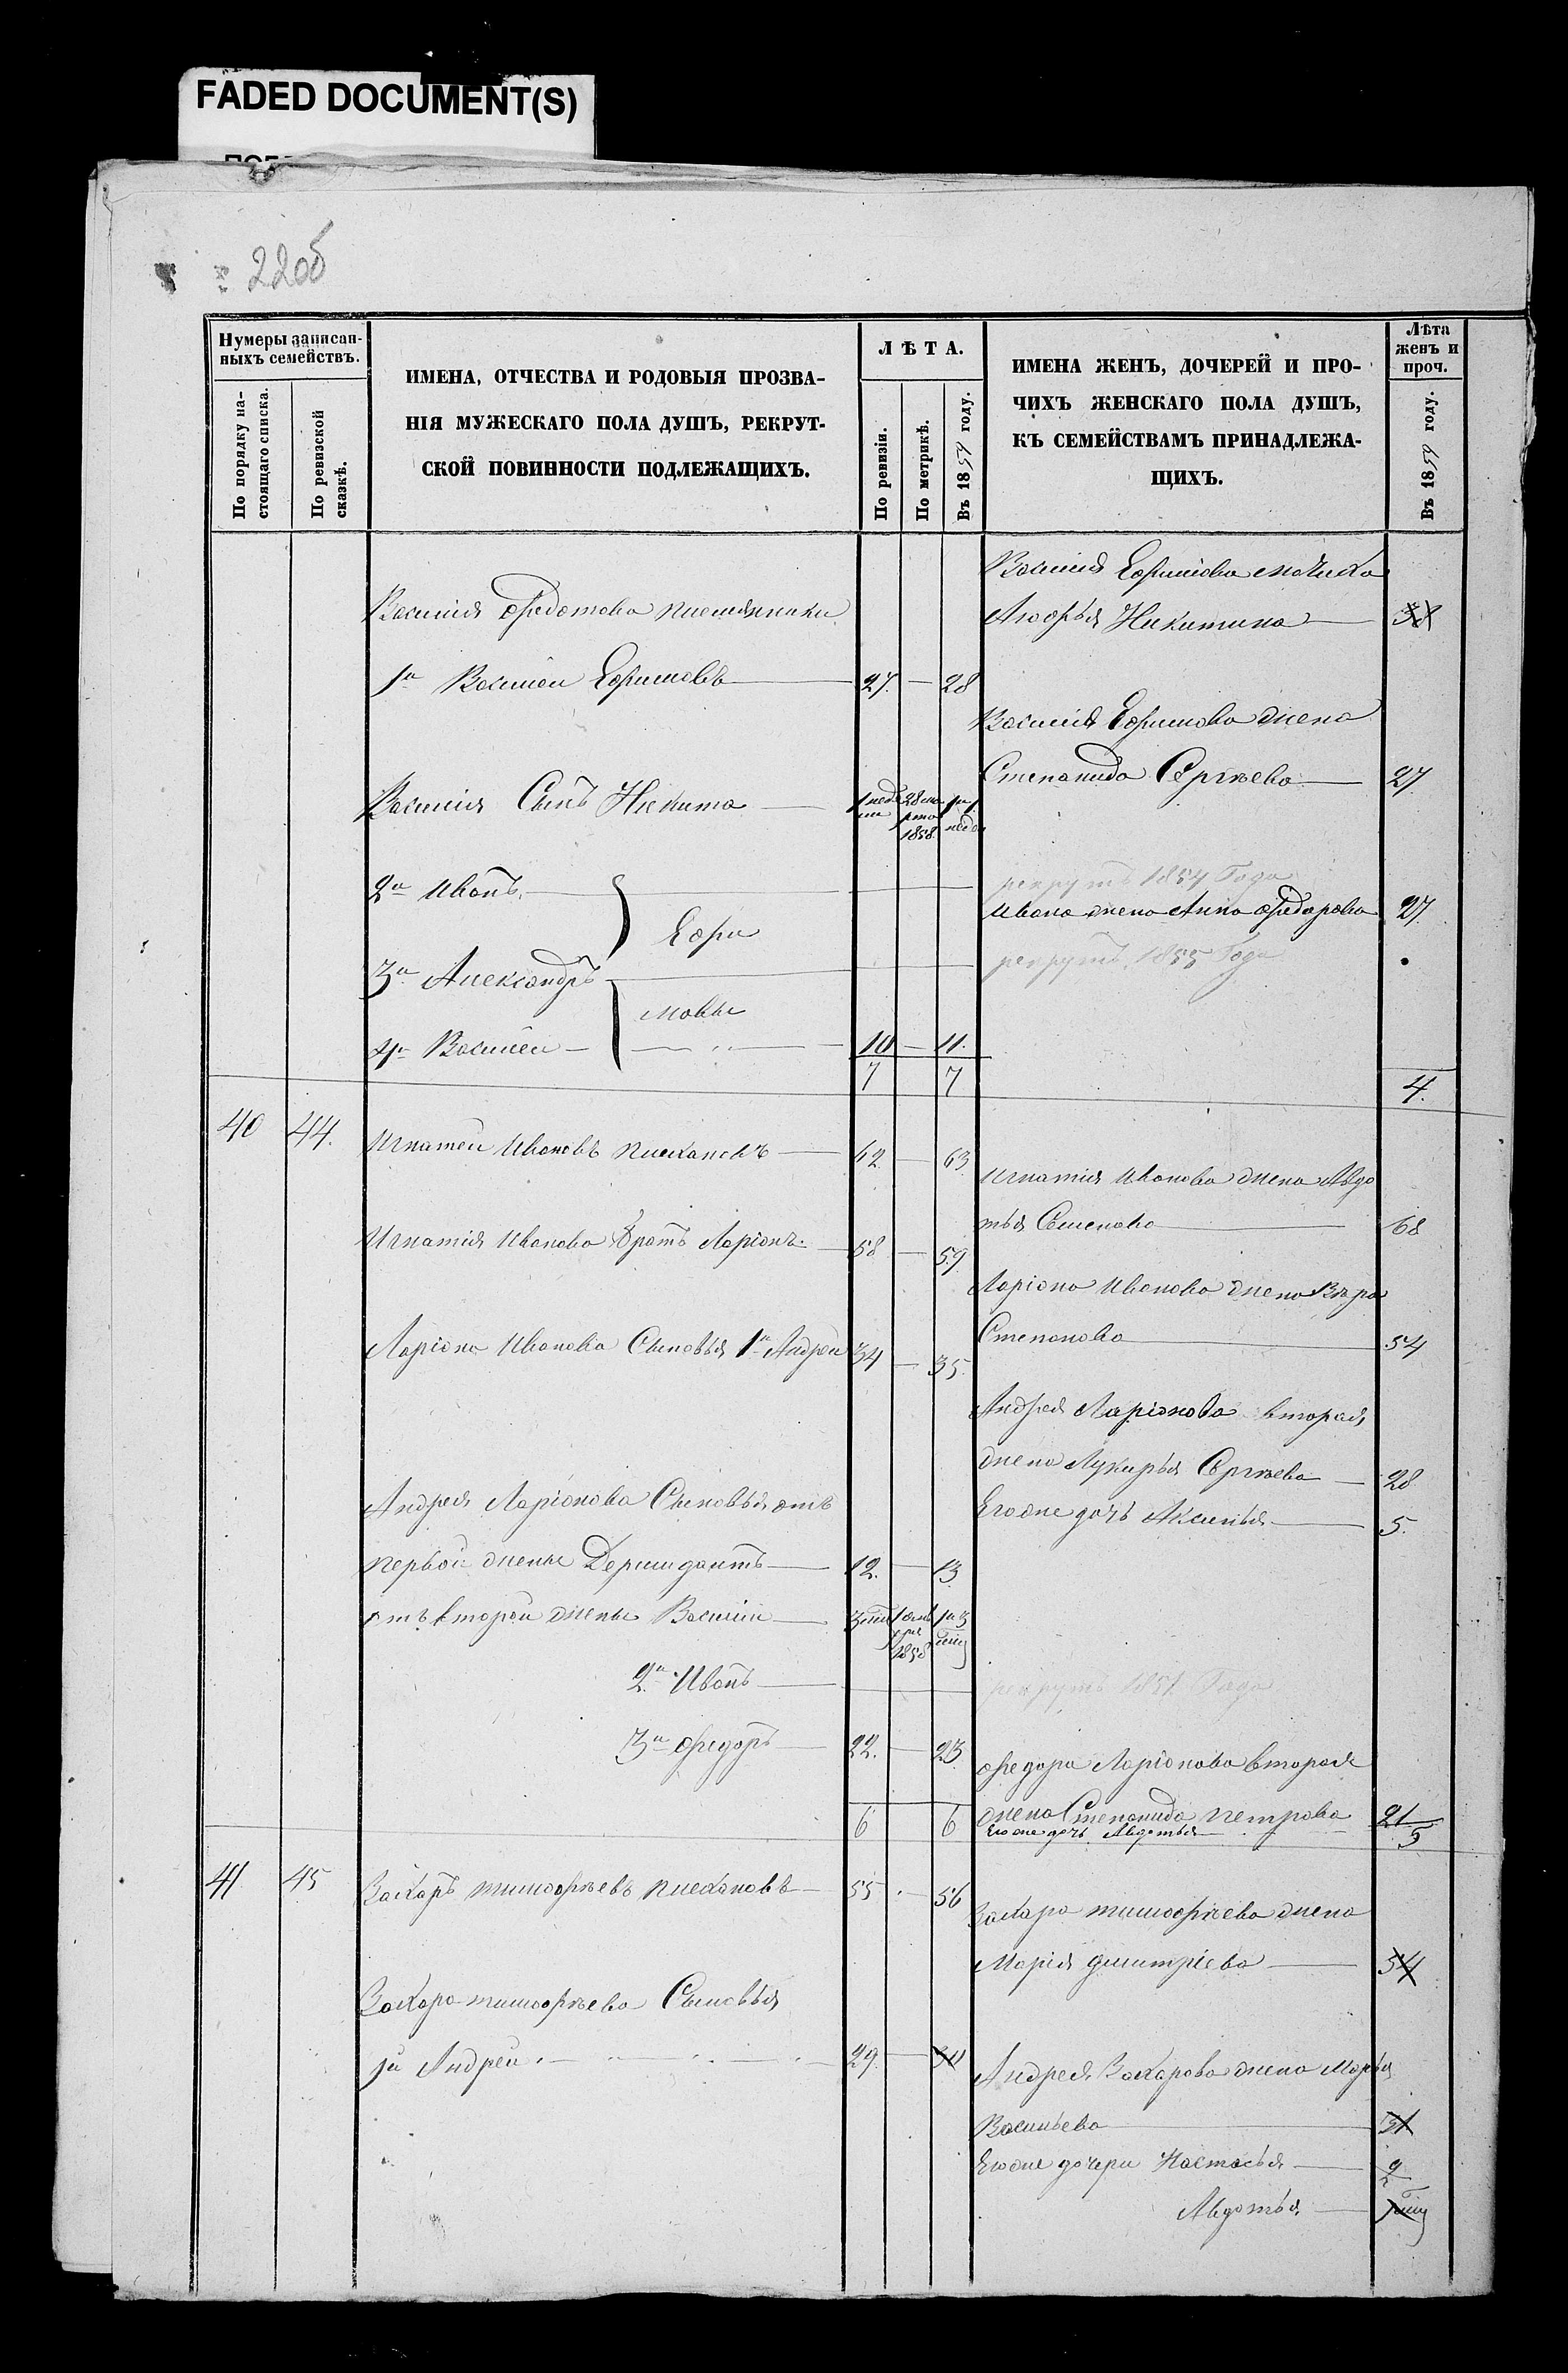 FADED DOCUMENT(S)
220б
Нумеры записан-
ныхъ семействъ.
По порядку на-
стоящаго списка.
По ревизской
сказкѣ.
ИМЕНА, ОТЧЕСТВА И РОДОВЫЯ ПРОЗВА-
НІЯ МУЖЕСКАГО ПОЛА ДУШЪ, РЕКРУТ-
СКОЙ ПОВИННОСТИ ПОДЛЕЖАЩИХЪ.
ЛѢТА.
По ревизіи.
По метрикѣ.
Въ 1859 году.
ИМЕНА ЖЕНЪ, ДОЧЕРЕЙ И ПРО-
ЧИХЪ ЖЕНСКАГО ПОЛА ДУШЪ,
КЪ СЕМЕЙСТВАМЪ ПРИНАДЛЕЖА-
ЩИХЪ.
Лѣта
женъ и
проч.
Въ 1859 году.
Василія Ефимова мачиха
Василія Федотова племянники
Агафья Никитина
1й Василей Ефимовъ 27. 28
Василія Ефимова жена
Степанида Сергѣева 27
Василія Сынъ Никита
1858.
2й Иванъ
рекрутъ 1854 Года
Ивана жена Анна Федорова 27.
Ефи
3й Александръ
рекрутъ 1855 Года
мовы
4й Василей 10 11.
7 7 4.
40 44. Игнатей Ивановъ 62. 63
Игнатія Ивонова жена Авдо
тья Семенова 68
Игнатія Иванова братъ Ларіонъ 58 59
Ларіона Иванова жена Вѣра
Степанова 54
Ларіона Иванова Сыновья 1й Андрей 34 35.
Андрея Ларіонова вторая
жена Лукирья Сергѣева 28
Андрея Ларіонова Сыновья отъ
Егоже дочь Аксинья 5.
первой жены 12. 13
отъ второй жены Василій
1858
2й Иванъ
рекрутъ 1857 Года
3й Федоръ 22. 23
Федора Ларіонова вторая
жена Степанида Петрова 21
Егоже дочь Авдотья
6 6 5
41 45 Захаръ Тимофѣевъ 55 56
Захара Тимофѣева жена
Марія Дмитріева 54
Захара Тимофѣева Сыновья
1й Андрей 29. 30
Андрея Захарова жена Марья
Васильева 31
Егоже дочери Настасья 2
Авдотья